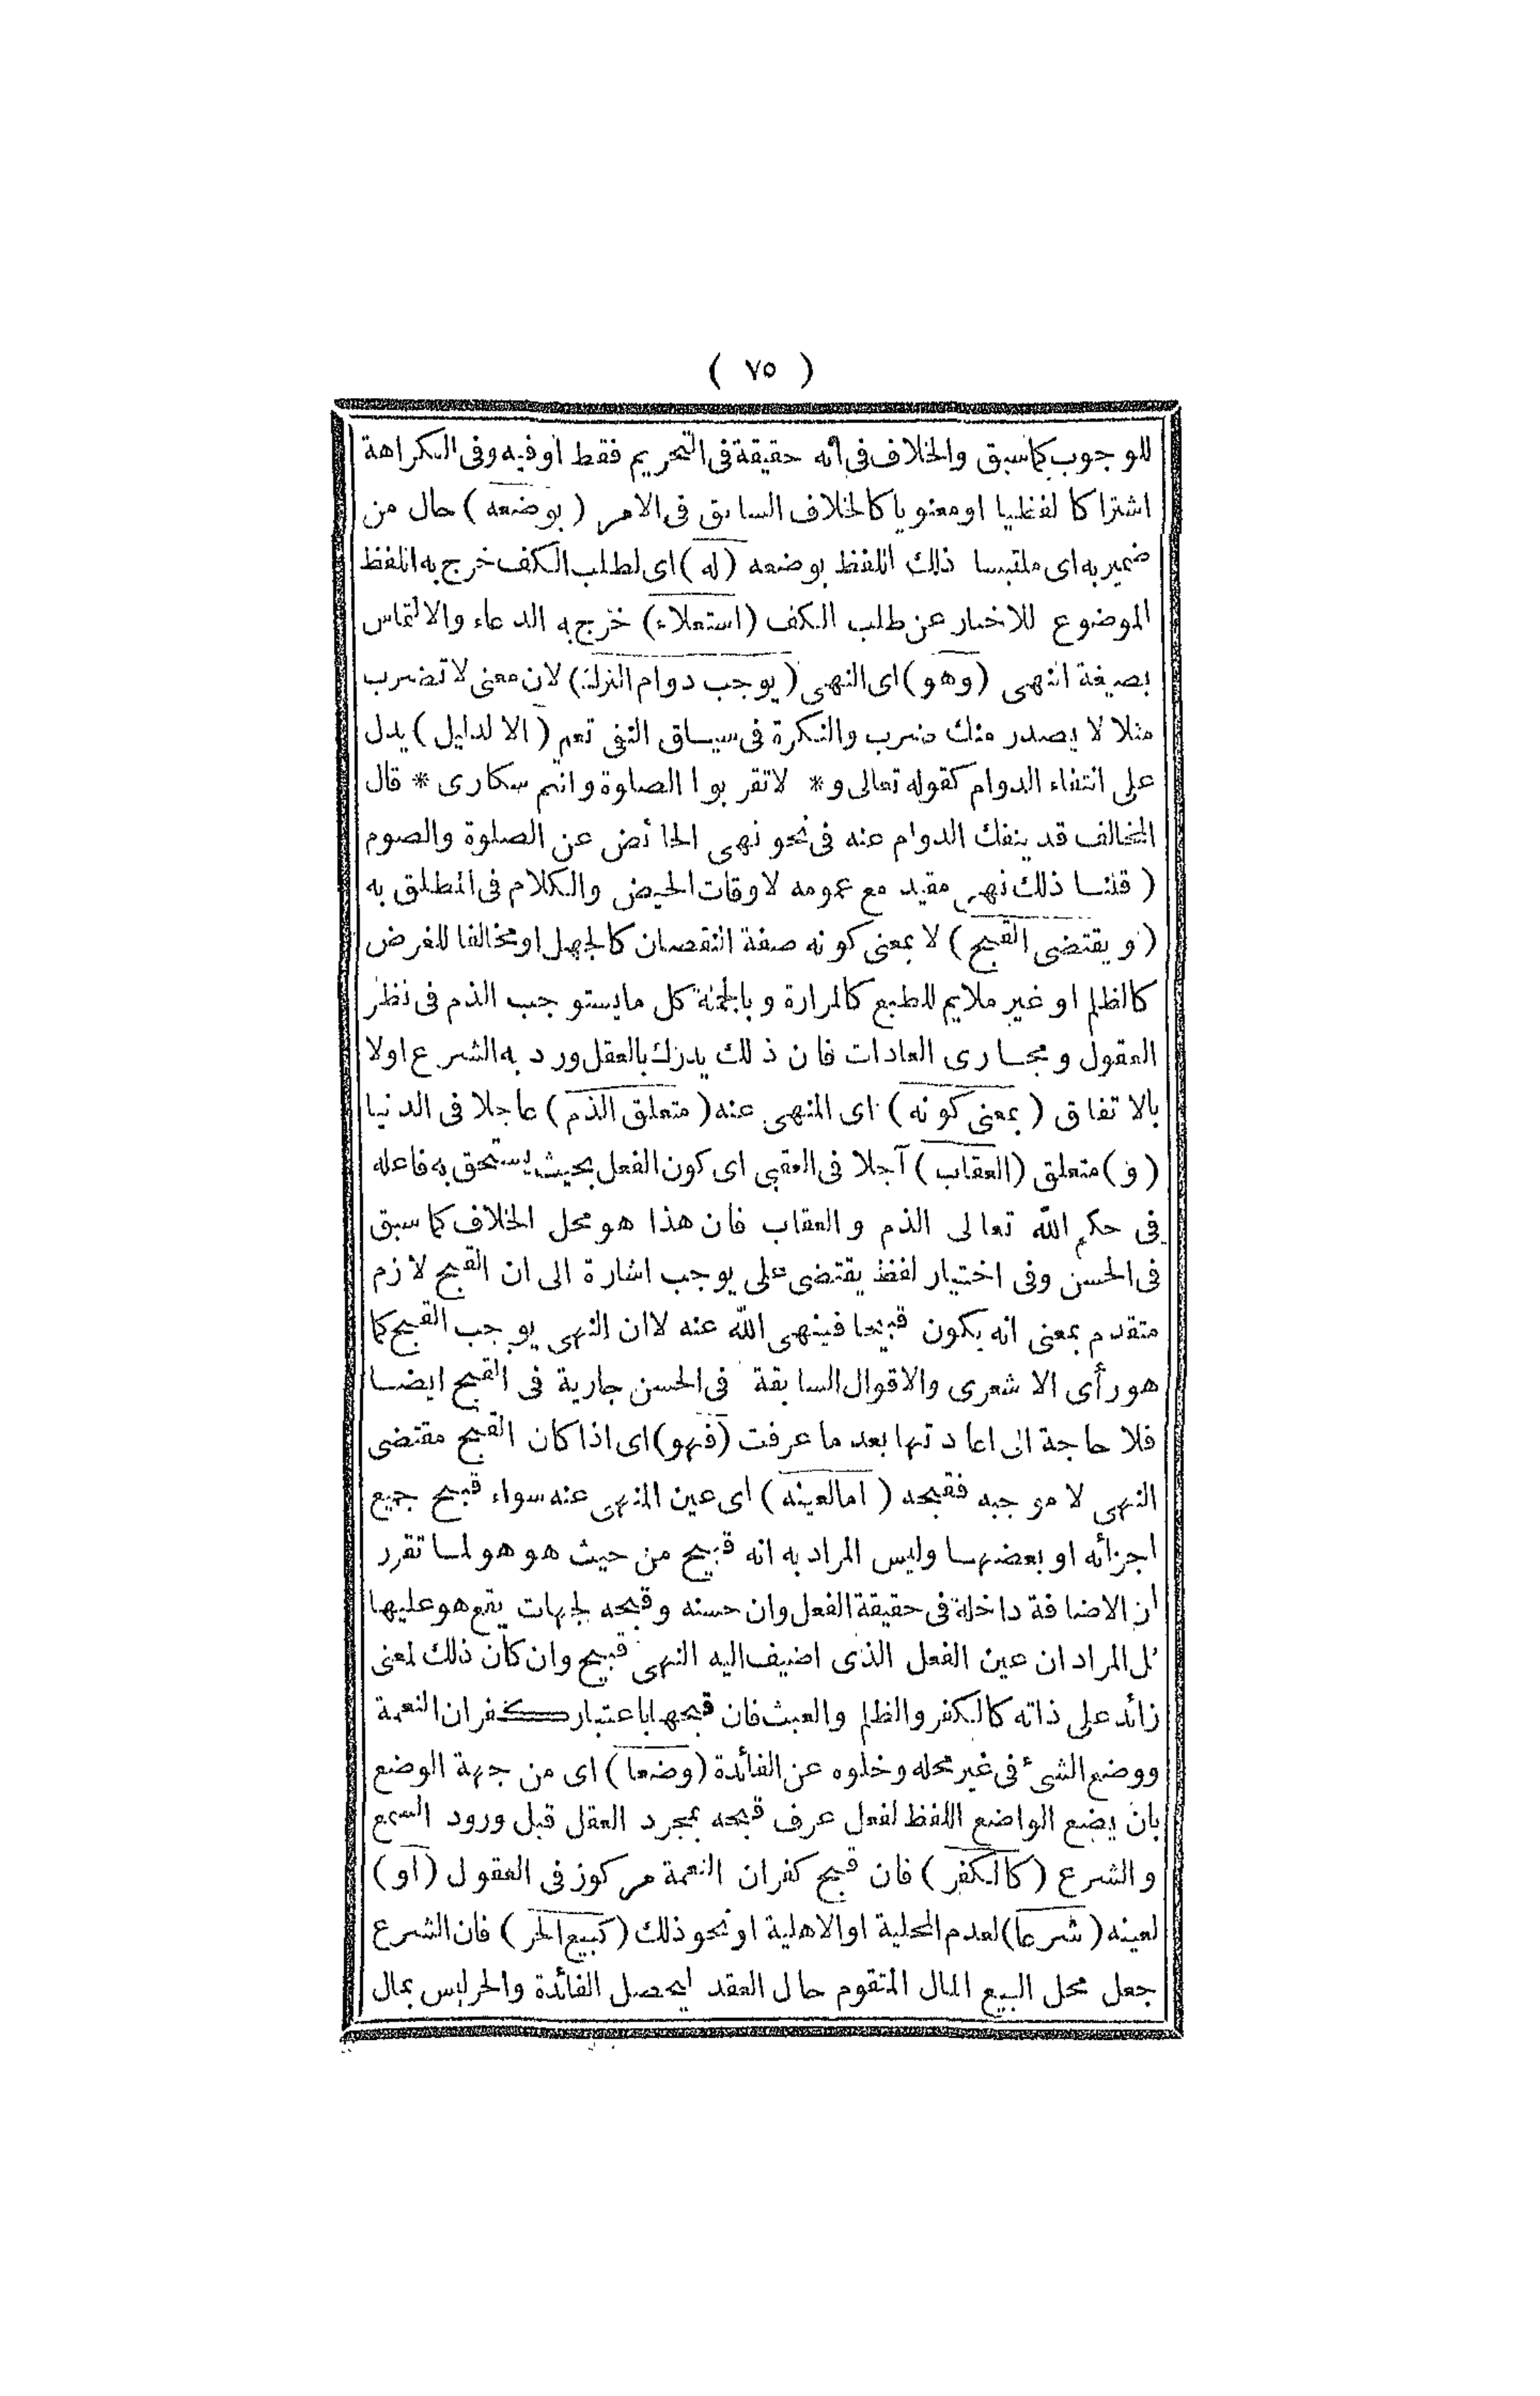 ( ٧٥ )
للوجوب كما سبق والخلاف فى انه حقيقة فى التحريم فقط او فيه وفى الكراهة
اشتراكا لفظيا او معنويا كالخلاف السابق فى الامر ( بوضعه ) حال من
ضمير به اى ملتبسا ذلك اللفظ بوضعه ( له ) اى لطلب الكف خرج به اللفظ
الموضوع للاخبار عن طلب الكف ( استعلاء ) خرج به الدعاء والالتماس
بصيغة النهى ( وهو ) اى النهى ( يوجب دوام الترك ) لان معنى لا تضرب
مثلا لا يصدر منك ضرب والنكرة فى سياق النفى تعم ( الا لدليل ) يدل
على انتفاء الدوام كقوله تعالى و * لا تقربوا الصلوة وانتم سكارى * قال
المخالف قد ينفك الدوام عنه فى نحو نهى الحائض عن الصلوة والصوم
( قلنا ذلك نهى مقيد مع عمومه لاوقات الحيض والكلام فى المطلق به
( ويقتضى القبح ) لا بمعنى كونه صفة النقصان كالجهل او مخالفا للغرض
كالظلم او غير ملايم للطبع كالمرارة وبالجملة كل ما يستوجب الذم فى نظر
العقول ومجارى العادات فان ذلك يدرك بالعقل ورد به الشرع اولا
بالاتفاق ( بمعنى كونه ) اى المنهى عنه ( متعلق الذم ) عاجلا فى الدنيا
( و ) متعلق ( العقاب ) آجلا فى العقبى اى كون الفعل بحيث يستحق به فاعله
فى حكم الله تعالى الذم والعقاب فان هذا هو محل الخلاف كما سبق
فى الحسن وفى اختيار لفظ يقتضى على يوجب اشارة الى ان القبح لازم
متقدم بمعنى انه يكون قبيحا فينهى الله عنه لا ان النهى يوجب القبح كما
هو رأى الاشعرى والاقوال السابقة فى الحسن جارية فى القبح ايضا
فلا حاجة الى اعادتها بعد ما عرفت ( فهو ) اى اذا كان القبح مقتضى
النهى لا موجبه فقبحه ( اما لعينه ) اى عين المنهى عنه سواء قبح جميع
اجزائه او بعضها وليس المراد به انه قبيح من حيث هو هو لما تقرر
ان الاضافة داخلة فى حقيقة الفعل وان حسنه وقبحه لجهات يقع هو عليها
بل المراد ان عين الفعل الذى اضيف اليه النهى قبيح وان كان ذلك لمعنى
زائد على ذاته كالكفر والظلم والعبث فان قبحها باعتبار كفران النعمة
ووضع الشئ فى غير محله وخلوه عن الفائدة ( وضعا ) اى من جهة الوضع
بان يضع الواضع اللفظ لفعل عرف قبحه بمجرد العقل قبل ورود السمع
والشرع ( كالكفر ) فان قبح كفران النعمة مركوز فى العقول ( او )
لعينه ( شرعا ) لعدم المحلية او الاهلية او نحو ذلك ( كبيع الحر ) فان الشرع
جعل محل البيع المال المتقوم حال العقد ليحصل الفائدة والحر ليس بمال